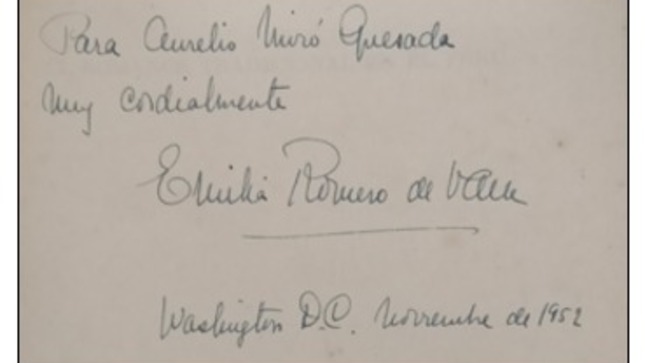 Para Aurelio Miró Quesada
muy cordialmente
Emilia Romero de Valle
Washington D.C. Noviembre de 1952